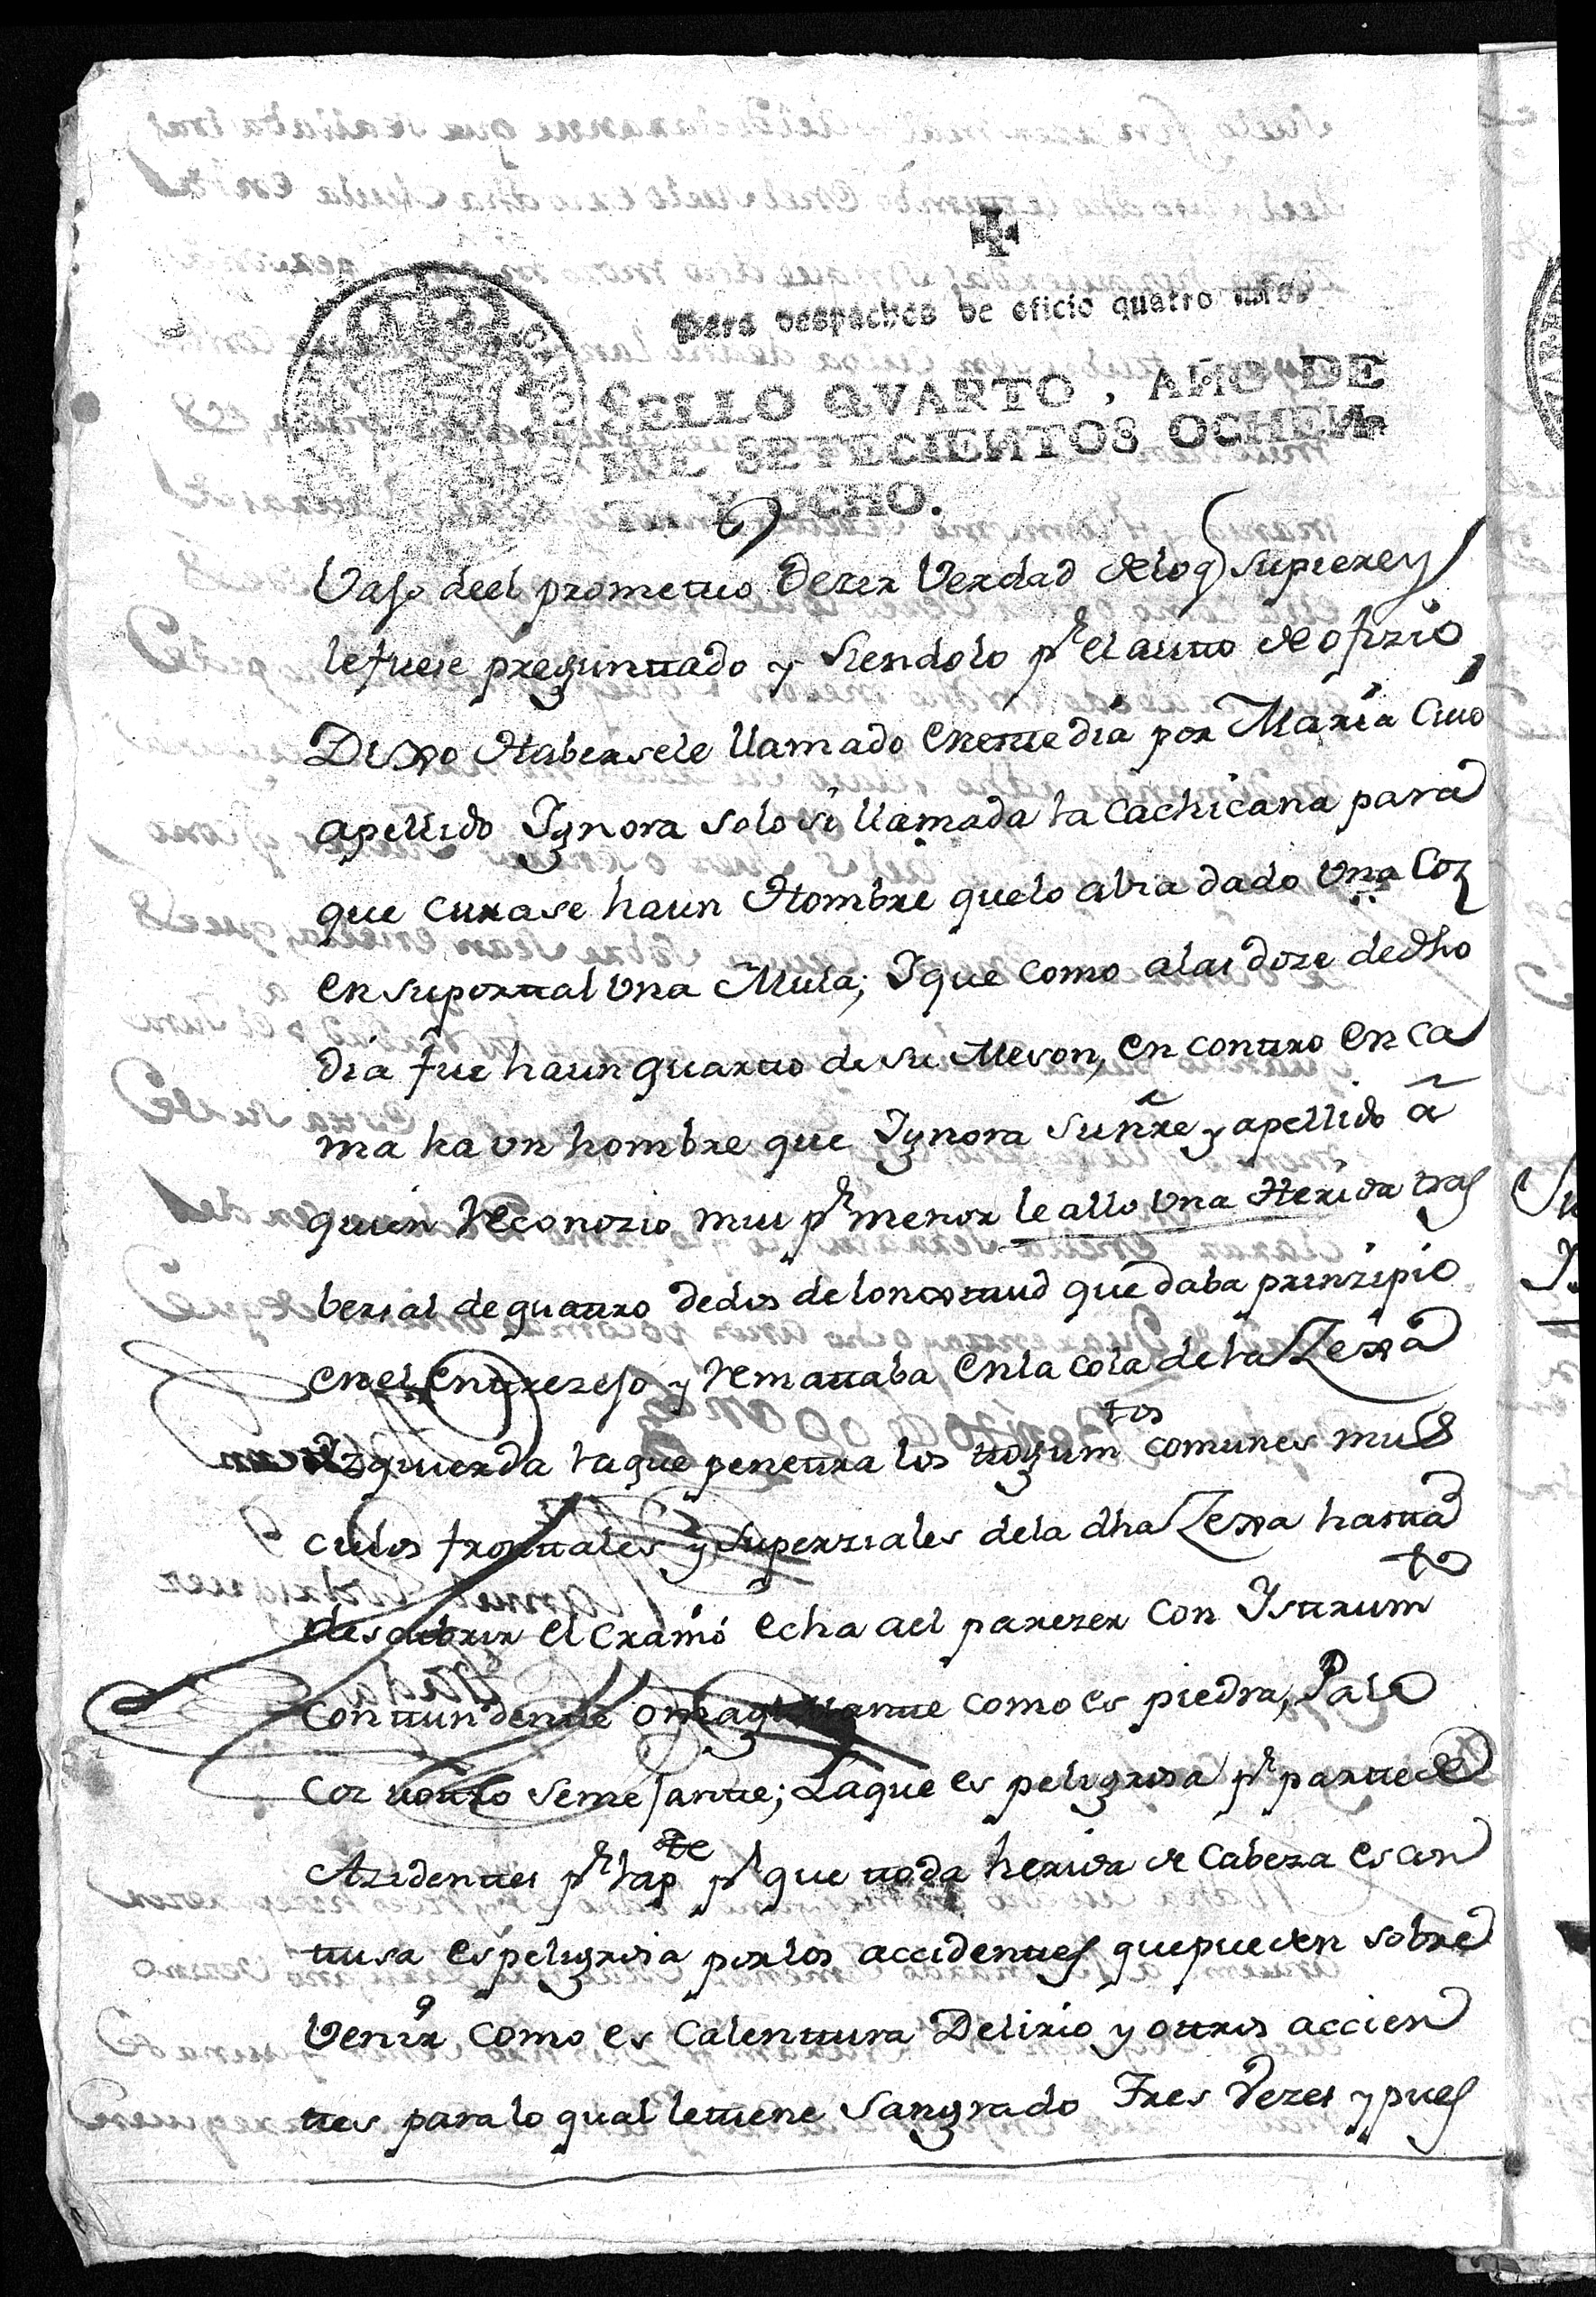 Para despachos de oficio quatro mrs.
SELLO QVARTO, AÑO DE
MIL SETECIENTOS OCHEN-
TA Y OCHO.
Vajo deel prometio Dezir Verdad deloq supiere y
le fuese preguntado y siendolo pr el autto de ofizio
Dixo Habersele llamado en este dia por Maria Cuio
apellido Ygnora solo si llamada la Cachicana para
que curase ha un Hombre que lo abia dado Una Coz
en su portal Una Mula; Y que como alas doze de dho
dia fue ha un quarto de su Meson, encontro en ca
ma ha Un hombre que Ygnora su nre y apellido a
quien Reconozio mui pr menor le allo Una Herida tras
bersal de quatro dedos de lonxitud que daba prinzipio
en el entrezejo y Remataba en la cola de la Zexa
Yzquierda la que penetra los tegumtos comunes mus
culos frontales y superziales dela dha Zexa hasta
descubrir el Cranio echa a el parezer con Ystrumto
Contundente o magullante como es piedra, Palo
Coz u otro semejante; La que es peligrosa pr parte de
Azidentes pr la pte pr que toda herida de Cabeza es con
tusa es peligrosa por los accidentes que pueden sobre
Venir como es Calentura Delirio y otros accien
tes para lo qual le tiene Sangrado Tres Vezes y pues